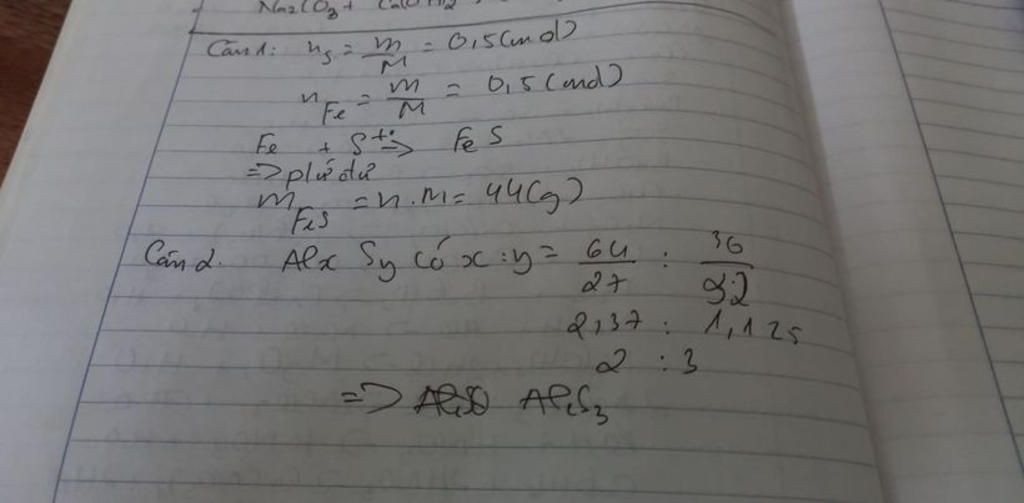 Na2CO3 + Ca(OH)2
Câu 1: nS = m/M = 0,5 (mol)
nFe = m/M = 0,5 (mol)
Fe + S t°-> FeS
=>
mFeS = n.M = 44 (g)
Câu 2. AlxSy có x : y = 64/27 : 36/32
2,37 : 1,125
2 : 3
=> Al2S3